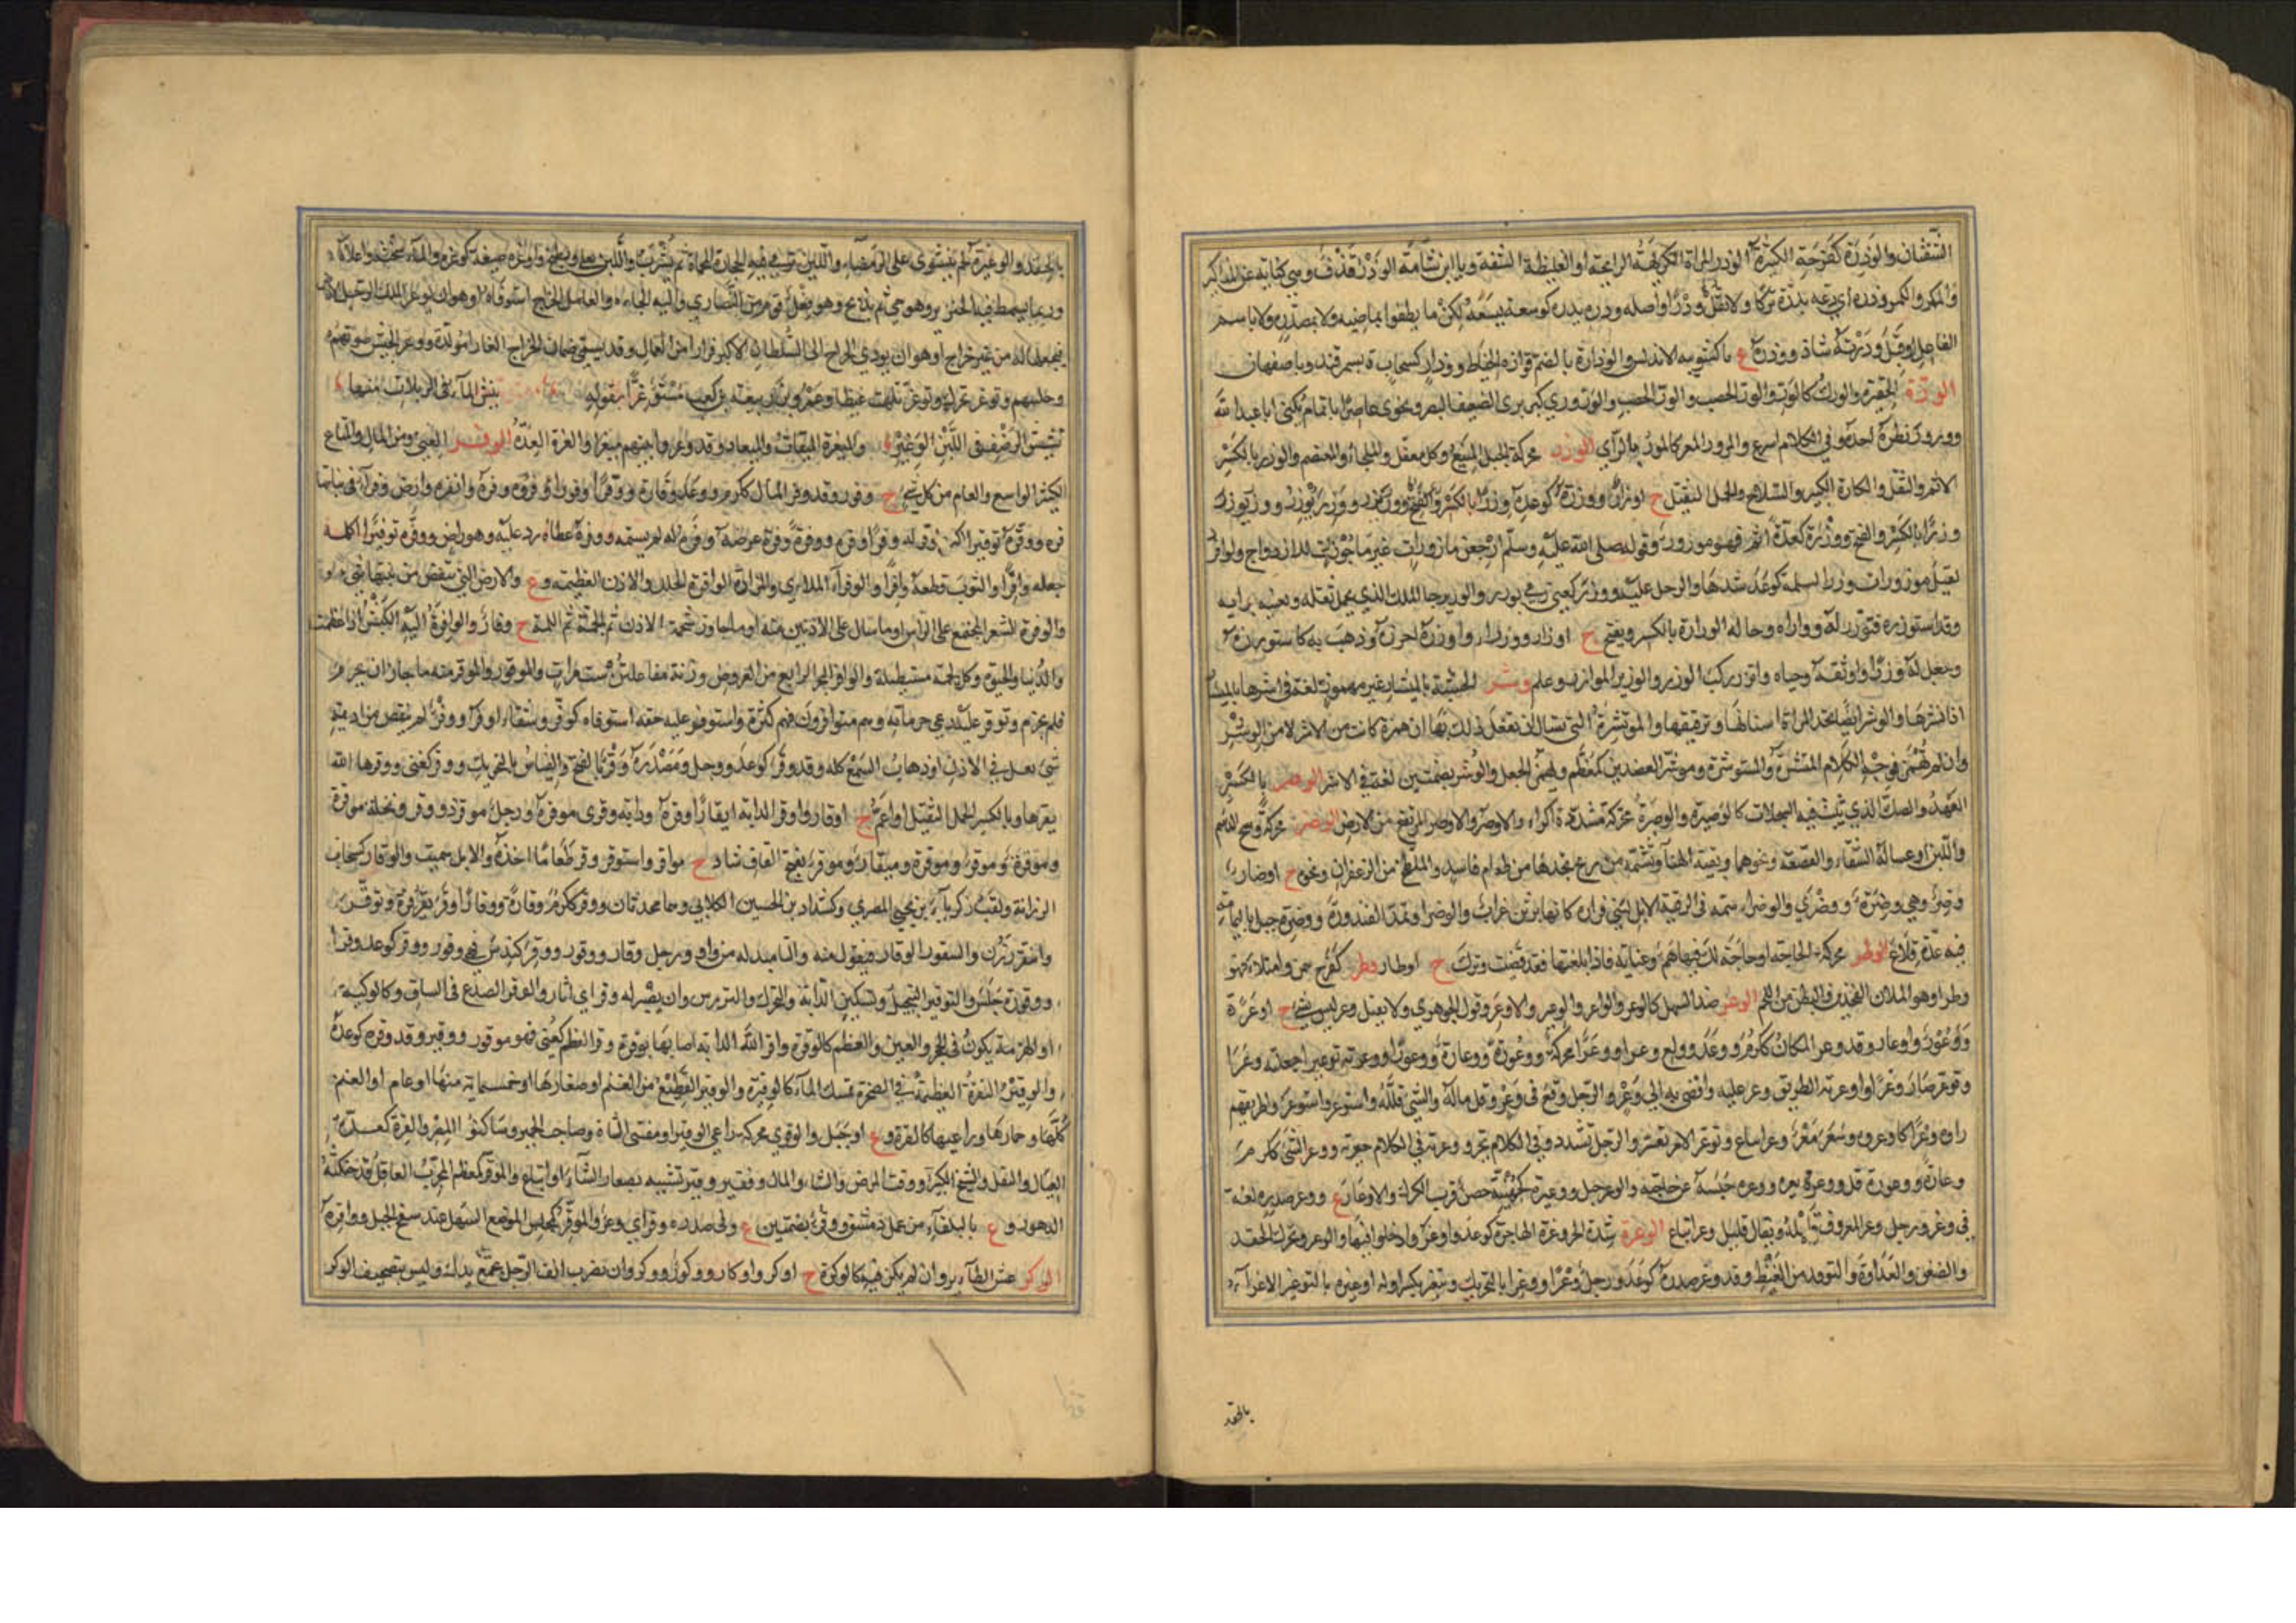 الشفتان والوذرة كفرحة الكثيرة الوذر والمراة الكريهة الرايحة او الغليظة الشفة ويا ابن شامة الوذر قذف وهي كناية عن المذاكير
والكمر وذره اى دعه يذره تركا ولا تقل وذرا واصله وذره يذره كوسعه يسعه لكن ما نطقوا بماضيه ولا بمصدره ولا باسم
الفاعل او قيل وذرته شاذ ووذرة ع باكشونية الاندلس والوذارة بالضم قوارة الخياط ووذار كسحاب ة بسمرقند وباصفهان
الورّة الحفيرة والورك كالور والور الخصب والورّى كبرى الضعيف البصر ونحوى عاصر ابا تمام يكنى ابا عبد الله
وورور نظره احده وفى الكلام اسرع والمرور المعر كالموز بالزاى الوزر محركة الجبل المنيع وكل معقل والملجاء والمعتصم والوزر بالكسر
الاثم والثقل والكارة الكبيرة والسلاح والحمل الثقيل ح اوزار ووزره كوعده وزرا بالكسر والفتح ووزر يزر ووزر يوزر ووزر يوزر
وزرا بالكسر والفتح ووزرة كعدة اثم فهو موزور وقوله صلى الله عليه وسلم ارجعن مازورات غير ماجورات للازدواج ولو افرد
لقيل موزورات ووزر الثلمة كوعد سدها والرجل غلبه ووزر كعنى رمى بوزر والوزير حبا الملك الذى يحمل ثقله ويعينه برايه
وقد استوزره فتوزر له ووازره وحاله الوزارة بالكسر ويفتح ح اوزار ووزراء واوزره احرزه وذهب به كاستوزره
وجعل له وزرا واوثقه وخباه واتزر ركب الوزر والوزير الموازر وعلم وشر الخشبة بالميشار غير مهموز لغة فى اشرها بالميشار
اذا نشرها والوشر ايضا تحديد المراة اسنانها وترقيقها والموتشرة التى تسال ان يفعل ذلك بها ان همزة كانت من الاشر لا من الوشر
وان لم تهمز فوجه الكلام المتشرة والمستوشرة وموشر العضدين كمعظم ويهمز الجعل والوشر بضمتين لغة فى الاشر الوصر بالكسر
العهد والصك الذى يثبت فيه السجلات كالوصيرة والوصرة محركة مشددة آكواه والاوصر المرتفع من الارض الوضر محركة وسخ الدسم
واللبن او غسالة السقاء والقصعة ونحوهما وبقية الهناء وتشمه من ريح تجدها من طعام فاسد واللطخ من الزعفران ونحوه ح اوضار
وضر وهى وضرة ووضرى والوضراء سمة فى الرقبة الابل لبنى فزارة كانها برثن غراب والوضرى وتمد الفندورة ووضرة جبل باليمامة
فيه عدة قلاع الوطر محركة الحاجة او حاجة لك فيها هم وعناية فاذا بلغتها فقد قضيت وطرك ح اوطار وظر كفرح سمن وامتلا كنهو
وظرا وهو الملان الفخذين والبطن من اللحم الوعر ضد السهل كالوعر والواعر والوعير والاوعر وقول الجوهرى ولا يقل وعر ليس بشى ح اوعرة
ووعور واوعار وقد وعر المكان ككرم ووعد وولع وعرا ووعرا محركة ووعورة ووعارة ووعورا ووعرته توعيرا جعلته وعرا
وتوعر صار وعرا واوعر به الطريق وعر عليه وافضى به الى وعر والرجل وقع فى وعر وقل ماله والشى قلله واستوعروا استوعروا طريقهم
راوه وعرا كاوعروه وشعر معر وعر اتباع وتوعر الامر تعسر والرجل تشدد وفى الكلام تحير ووعرته فى الكلام حيرته ووعر الشى ككرم
وعارة ووعورة قل ووعره يعره ووعره حبسه عن حاجته والوعر جبل ووعيرة كجهينة حصن قرب الكرك والاوعار ع ووعر صدره لغة
فى وغر ورجل وعر المعروف قليله ويقال قليل وعر اتباع الوغرة شدة الحر وغرة الهاجرة كوعد واوغروا دخلوا فيها والوغر ويحرك الحقد
والضغن والعداوة والتوقد من الغيظ وقد وغر صدره كوعد ووجل وغرا ووغرا بالتحريك ويغر بكسر اوله واوغره بالتوغير الاغراء
بالحقد
بالحقد والوغيرة لحم يشوى على الرمضاء واللبن ترمى فيه الحجارة المحماة ثم يشرب واللبن يغلى ويطبخ واوغره صنعه كوغره والماء سخنه واغلاه
وربما يسمط فيه الخنزير وهو حى ثم يذبح وهو فعل قوم من النصارى واليه الجاءه والعامل الخراج استوفاه او هو ان يوغر الملك الرجل الارض
فيجعلها له من غير خراج او هو ان يودى الخراج الى السلطان الاكبر فرارا من العمال وقد يسمى ضمان الخراج ايغارا مولدة ووغر الجيش صوتهم
وجلبهم وتوغر تحرك وتوغر تلهب غيظا وعمرو بن ربيعة بن كعب مستوغرا لقوله ينش الماء فى الربلات منها
نشيش الرضف فى اللبن الوغير والميغرة الميقات والميعاد وقد وغروا بينهم ميغرا والغرة العدة الوفر الغنى ومن المال والمتاع
الكثير الواسع والعام من كل شى ح وفور وقد وفر المال ككرم ووعد وفارة ووفرا ووفورا وفرة ووفره وفرة وانفره وارض وفراء فى نباتها
فرة ووفره توفيرا اكثره كوفر له وفرا وفرة ووفره وفرة عرضه ووفره له لم يشتمه ووفره عطاه رده عليه وهو راض ووفره توفيرا اكمله
جعله وافرا والثوب قطعه وافرا والوفراء الملاى والمزادة الوافرة الجلد والاذن العظيمة وع والارض التى لم ينقص من نبتها شى
والوفرة الشعر المجتمع على الراس او ما سال على الاذنين منه او ما جاوز شحمة الاذن ثم الجمة ثم اللمة ح وفار والوافرة الية الكبش اذا عظمت
والدنيا والحيوة وكل شحمة مستطيلة والوافر البحر الرابع من العروض وزنه مفاعلتن ست مرات والموفور والموفر منه ما جاز ان يخرم
فلم يخرم وتوفر عليه رعى حرماته وهم متوافرون فيهم كثرة واستوفر عليه حقه استوفاه كوفر وسقاء اوفر ووفر لم ينقص من اديمه
شى ثقل فى الاذن او ذهاب السمع كله وقد وقر كوعد ووجل ومصدره وقر بالفتح والقياس بالتحريك ووقر كعنى ووقرها الله
يقرها وبالكسر الحمل الثقيل او اعم ح اوقار واوقر الدابة ايقارا وقرة ودابة وقرى موقرة ورجل موقر ذو وقر ونخلة موقرة
وموقرة وموقر وموقرة وميقار وموقر بفتح القاف شاذ ح مواقر واستوقر وقره طعاما اخذه والابل سمنت والوقار كسحاب
الرزانة ولقب زكرياء بن يحيى المصرى وكشداد بن الحسين الكلابى وحامد محدثان ووقر ككرم وقارة ووقارا وقر يقر قرة وتوقر
واتقر رزن والتيقور الوقار فيعول منه والتاء مبدلة من واو ورجل وقار ووقور ووقر كندس وهى وقور ووقر كوعد وقرا
ووقورة جلس والتوقير التبجيل وتسكين الدابة والجرح والتزين وان يصير له وقرات اى اثار والوقر الصدع فى الساق وكالوكتة
او الهزمة يكون فى الحجر والعين والعظم كالوقرة واوقر الله الدابة اصابها بوقرة ووقر العظم كعنى فهو موقور ووقير وقد وقره كوعده
والوقير النقرة العظيمة فى الصخرة تمسك الماء كالوقيرة والوقير القطيع من الغنم او صغارها او خمسماية منها او عام او الغنم
كلها وحمارها وراعيها كالقرة وع او جبل والوقرى محركة راعى الوقير او مقتنى الشاة وصاحب الحمير وساكنو المصر والقرة كعدة
العيال والثقل والشيخ الكبير ووقت المرض والشاء والمال وفقير وقير تشبيه بصغار الشاء او اتباع والموقر كمعظم المجرب العاقل قد حنكته
الدهور وع بالبلقاء من عمل دمشق ووقر بضمتين ع وفى صدره وقر اى وغر والموقر كمجلس الموضع السهل عند سفح الجبل وواقرة
الوكر عش الطاير وان لم يكن فيه كالوكرة ح اوكر واوكار ووكور ووكر وان تضرب انف الرجل بجمع يدك وليس بتصحيف الوكز